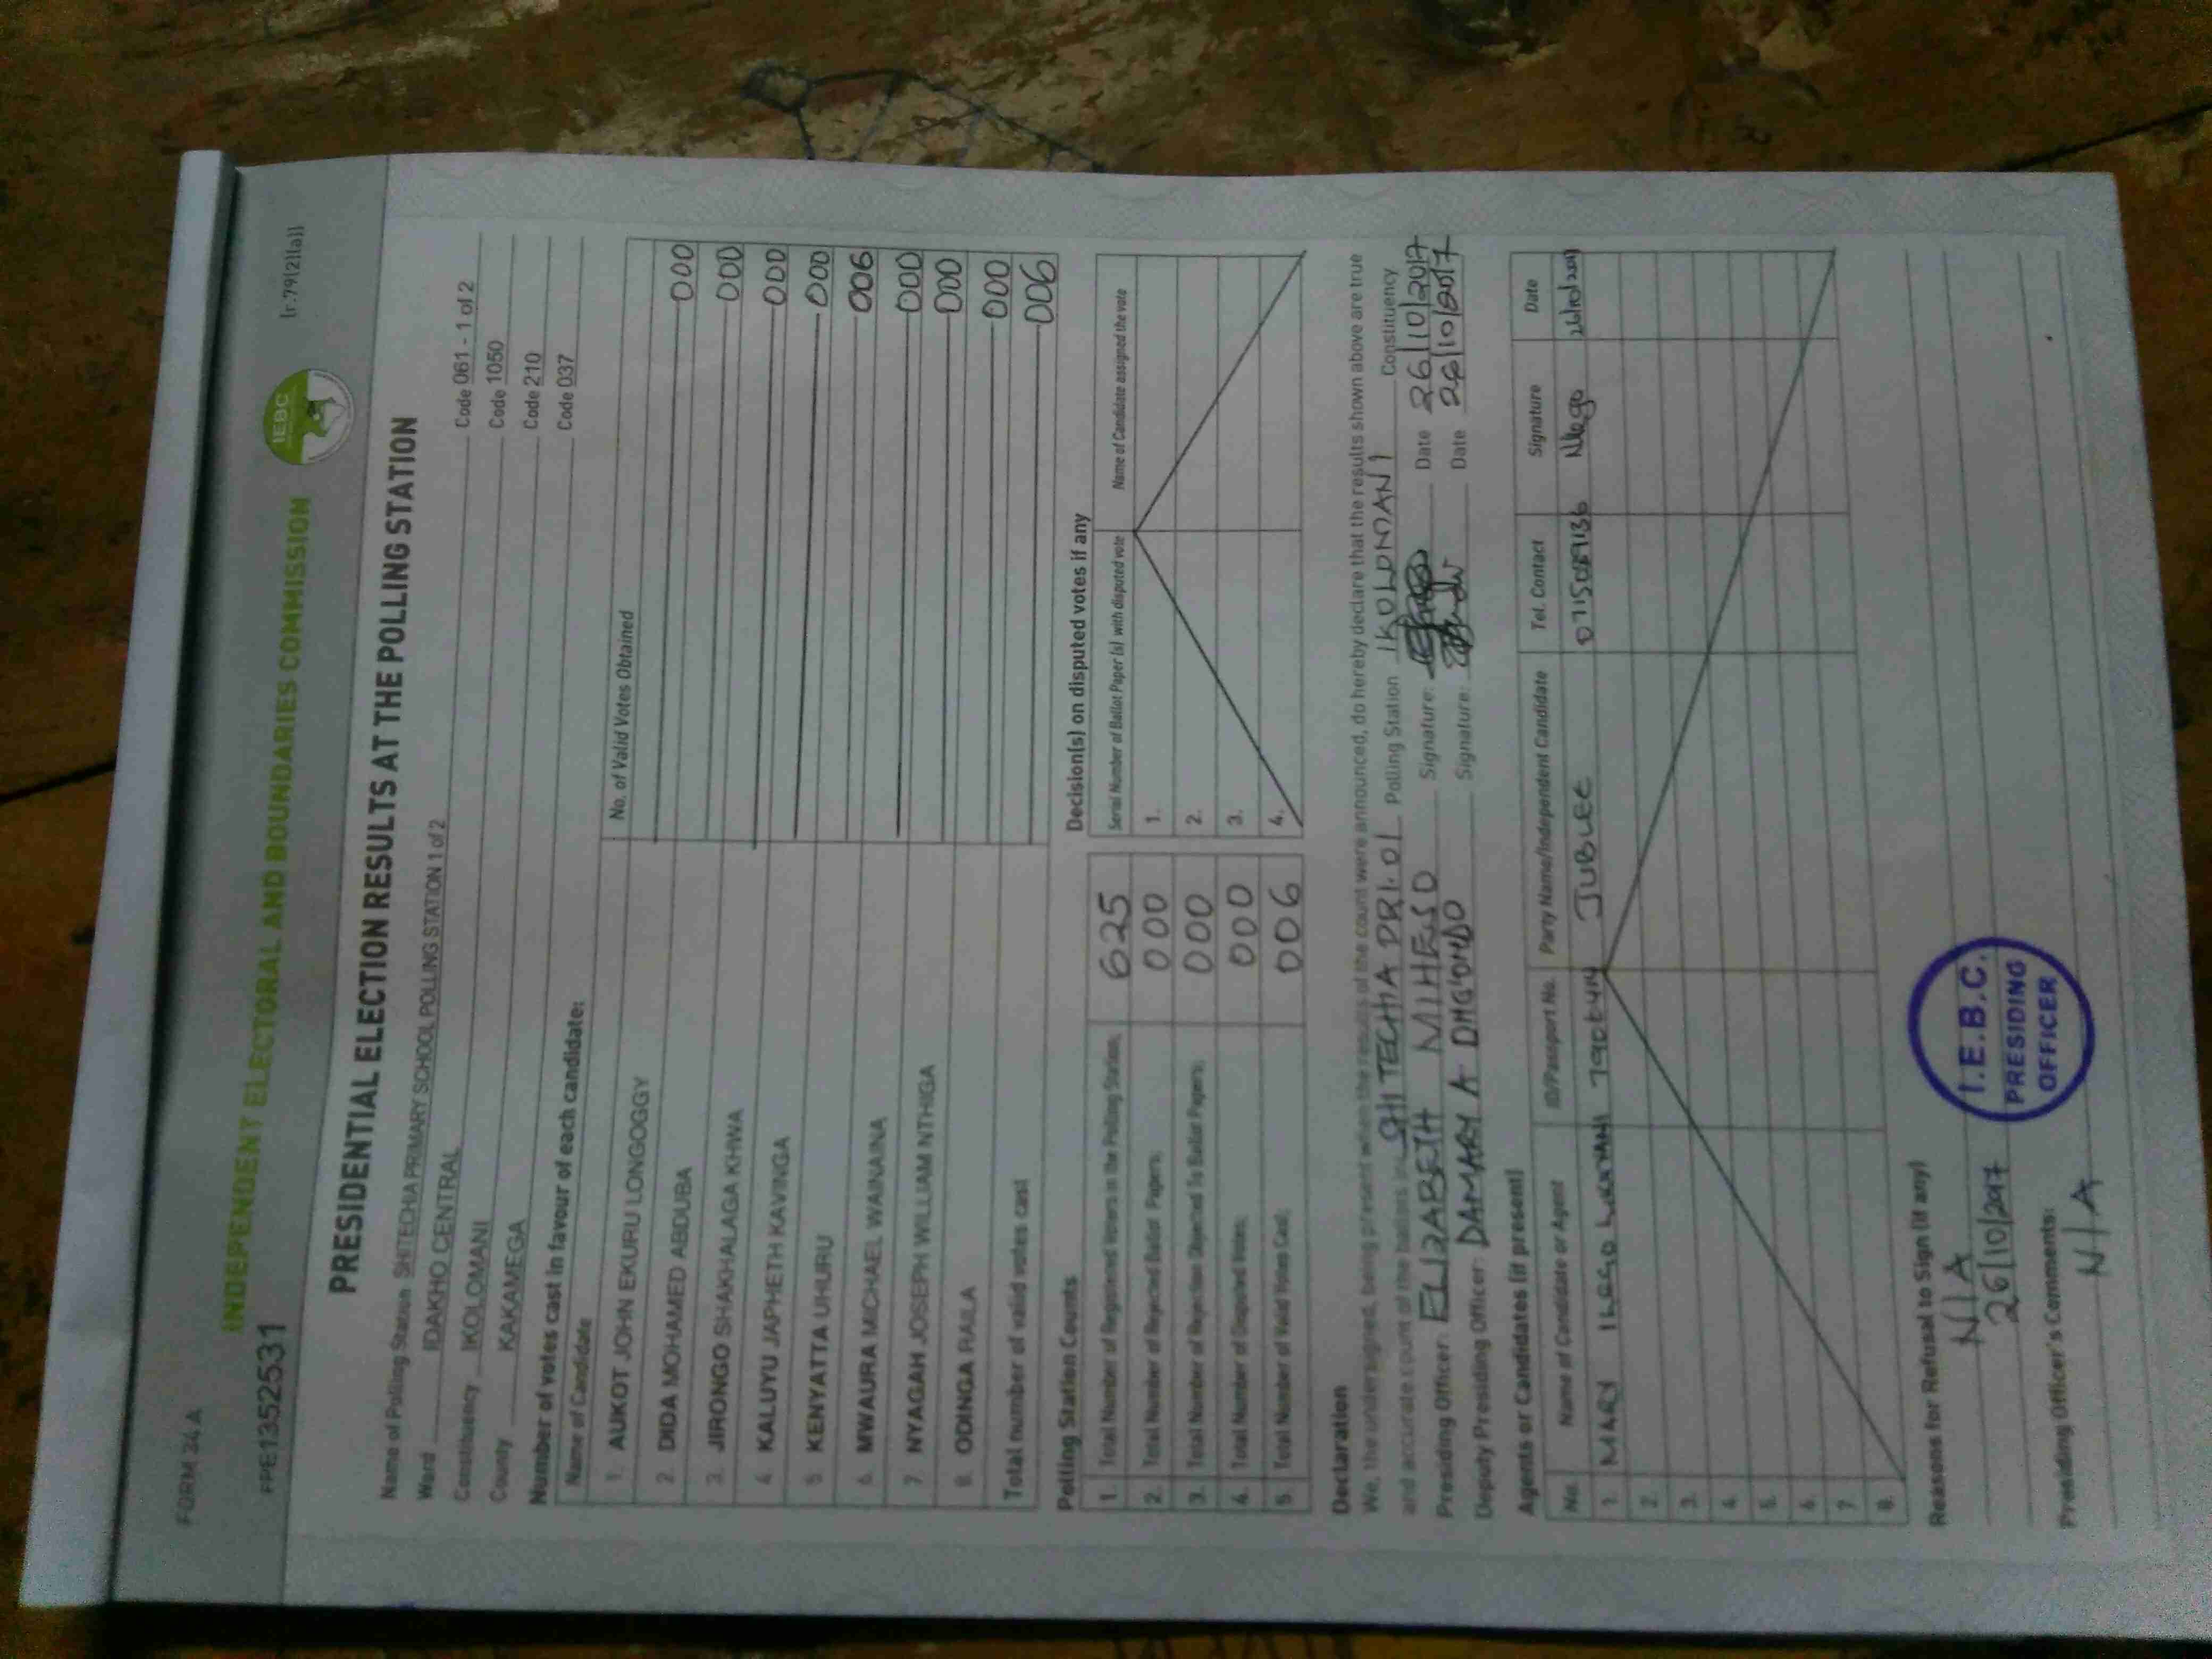 FORM 34A
INDEPENDENT ELECTORAL AND BOUNDARIES COMMISSION
IEBC
[r.79(2)(a)]
FPE1352531
PRESIDENTIAL ELECTION RESULTS AT THE POLLING STATION
Name of Polling Station SHITECHIA PRIMARY SCHOOL POLLING STATION 1 of 2 Code 061 - 1 of 2
Ward IDAKHO CENTRAL Code 1050
Constituency IKOLOMANI Code 210
County KAKAMEGA Code 037
Number of votes cast in favour of each candidate:
Name of Candidate No. of Valid Votes Obtained
1. AUKOT JOHN EKURU LONGOGGY 000
2. DIDA MOHAMED ABDUBA 000
3. JIRONGO SHAKHALAGA KHWA 000
4. KALUYU JAPHETH KAVINGA 000
5. KENYATTA UHURU 006
6. MWAURA MICHAEL WAINAINA 000
7. NYAGAH JOSEPH WILLIAM NTHIGA 000
8. ODINGA RAILA 000
Total number of valid votes cast 006
Polling Station Counts
1. Total Number of Registered Voters in the Polling Station; 625
2. Total Number of Rejected Ballot Papers; 000
3. Total Number of Rejection Objected To Ballot Papers; 000
4. Total Number of Disputed Votes; 000
5. Total Number of Valid Votes Cast; 006
Decision(s) on disputed votes if any
Serial Number of Ballot Paper (s) with disputed vote Name of Candidate assigned the vote
1.
2.
3.
4.
Declaration
We, the undersigned, being present when the results of the count were announced, do hereby declare that the results shown above are true
and accurate count of the ballots in SHITECHIA PRI. 01 Polling Station IKOLOMANI Constituency
Presiding Officer: ELIZABETH MIHESO Signature: Date 26/10/2017
Deputy Presiding Officer: DAMARY A Signature: Date 26/10/2017
Agents or Candidates (if present)
No. Name of Candidate or Agent ID/Passport No. Party Name/Independent Candidate Tel. Contact Signature Date
1. MARY JUBLEE 26/10/2017
2.
3.
4.
5.
6.
7.
8.
Reasons for Refusal to Sign (if any)
N/A
26/10/2017
I.E.B.C.
PRESIDING
OFFICER
Presiding Officer's Comments:
N/A